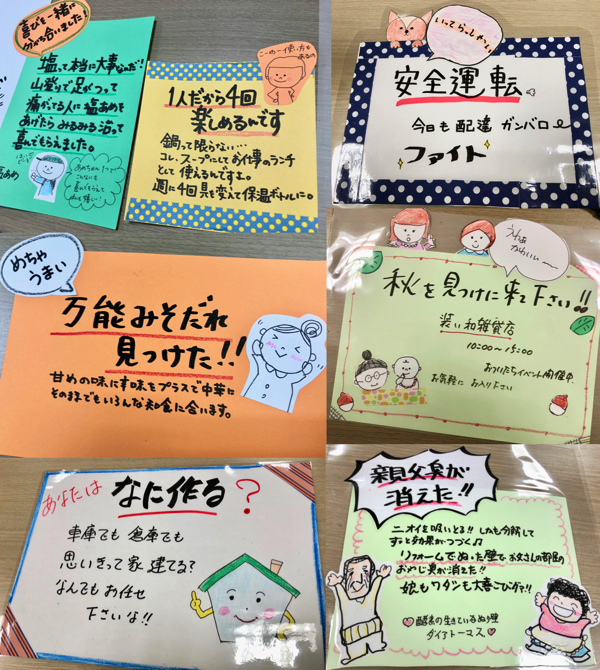 喜びを一緒に
分かち合いました!
塩って本当に大事なんだ!!
山登りで足がつって
痛がてる人に塩あめを
あげたらみるみる治って
喜んでもらえました。
あめちゃん1つで
こんなにも
喜んでもらえて
私も嬉しい
塩あめ
こーゆー使い方も
あるの
1人だから4回
楽しめるんです
鍋って限らない…
コレ、スープにしてお仕事のランチ
として使えるんですよ。
週に4回具を変えて保温ボトルに。
いってらっしゃい!
安全運転
今日も配達 ガンバロー
ファイト
めちゃ
うまい
万能みそだれ
見つけた!!
甘めの味にす味をプラスで中華に
そのままでもいろんな和食に合います。
えがお
かわいいー
秋を見つけに来て下さい!!
装い和雑貨店
10:00~15:00
おついたちイベント開催中
お気軽に お入り下さい
あなたは なに作る?
車庫でも 倉庫でも
思いきって家建てる?
なんでもお任せ
下さいな!!
親父臭が
消えた!!
ニオイを吸いとる!! しかも分解して
ずーと効果がつづく♫
リフォームでぬった壁でお父さんの部屋の
おやじ臭が消えた!!
娘もワタシも大喜びデス!!
酵素の生きているぬり壁
ダイアトーマス